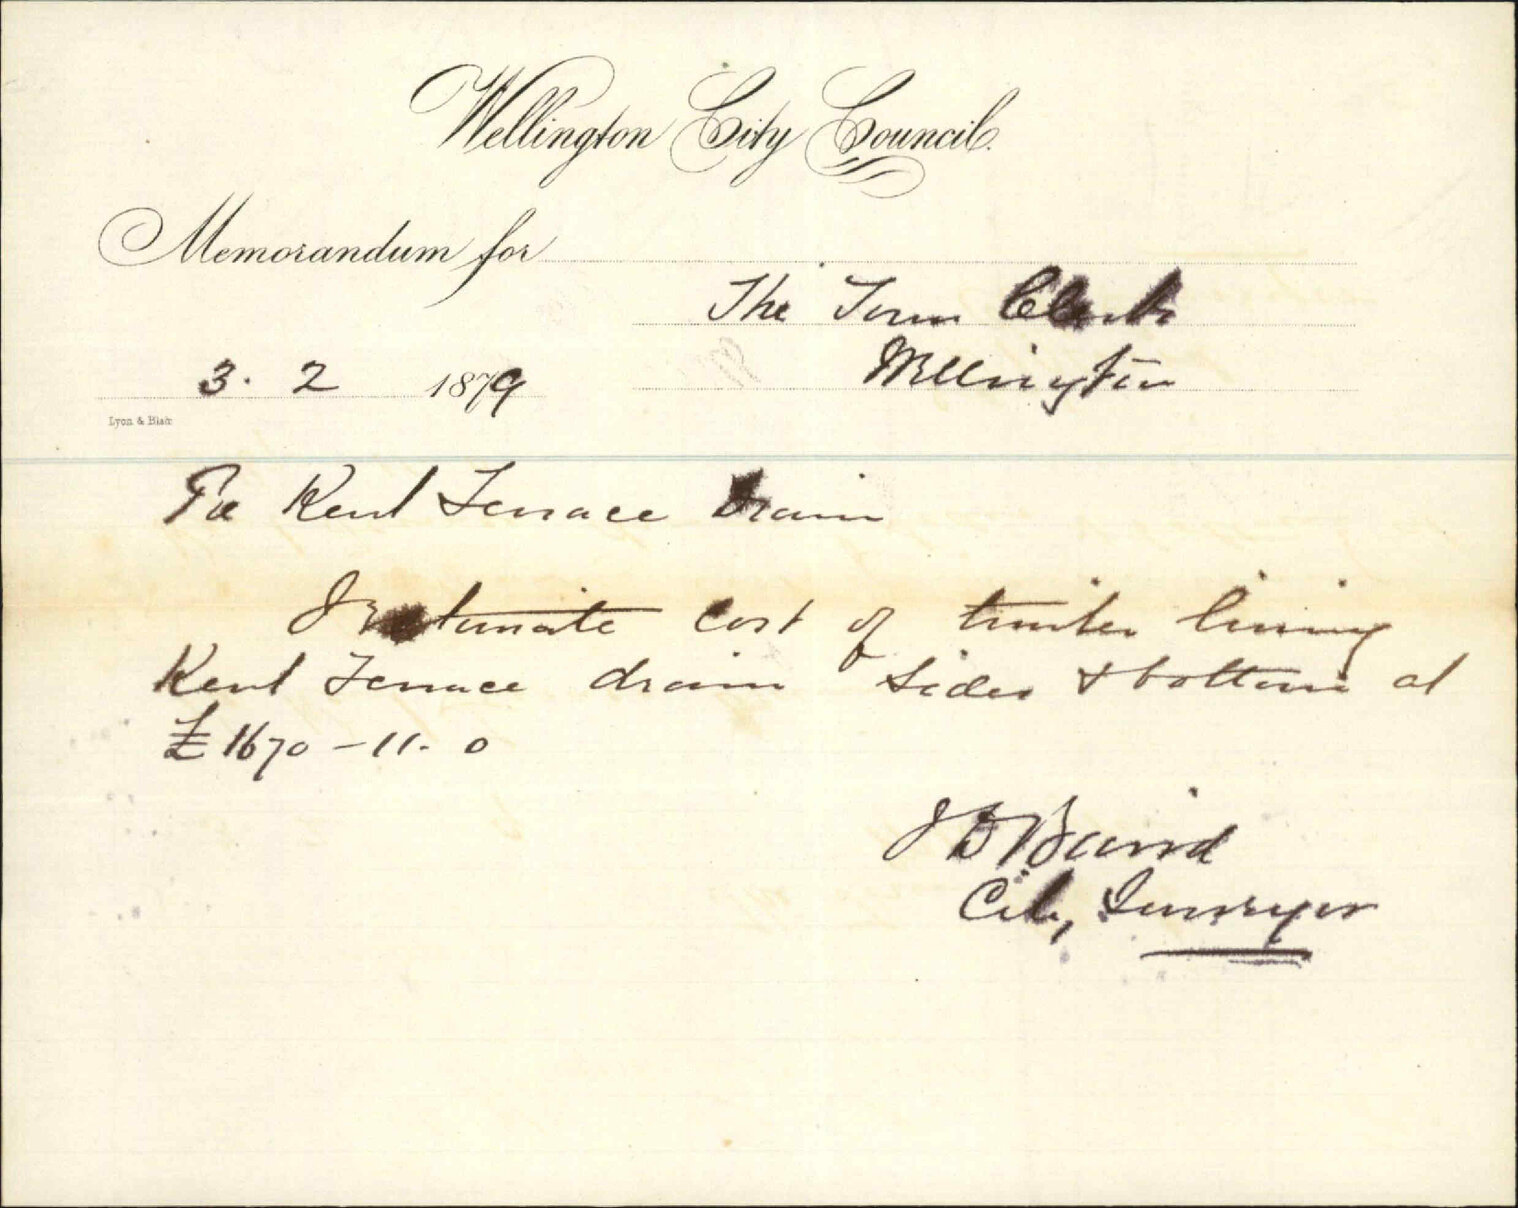 Wellington City Council.
Memorandum for
The Town Clerk
Wellington
3. 2 1879
Lyon & Blair
Re Kent Terrace Drain
I estimate cost of timber lining
Kent Terrace drain sides & bottom at
£1670-11. 0
J D Baird
City Surveyor